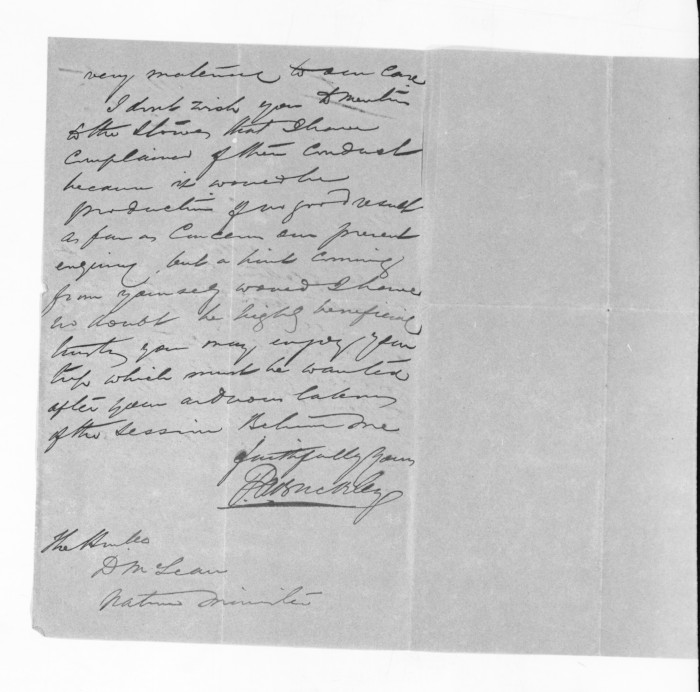 very material to our case
I don't wish you to mention
to the that I have
complained of their conduct
because it would be
productive of no good result
as far as concerns our present
enquiry, but a hint coming
from yourself would I have
no doubt be highly beneficial
trusting you may enjoy your
trip which must be wanted
after your arduous labors
of the session Believe me
faithfully yours
Buckley
The Honble
D McLean
Native Minister